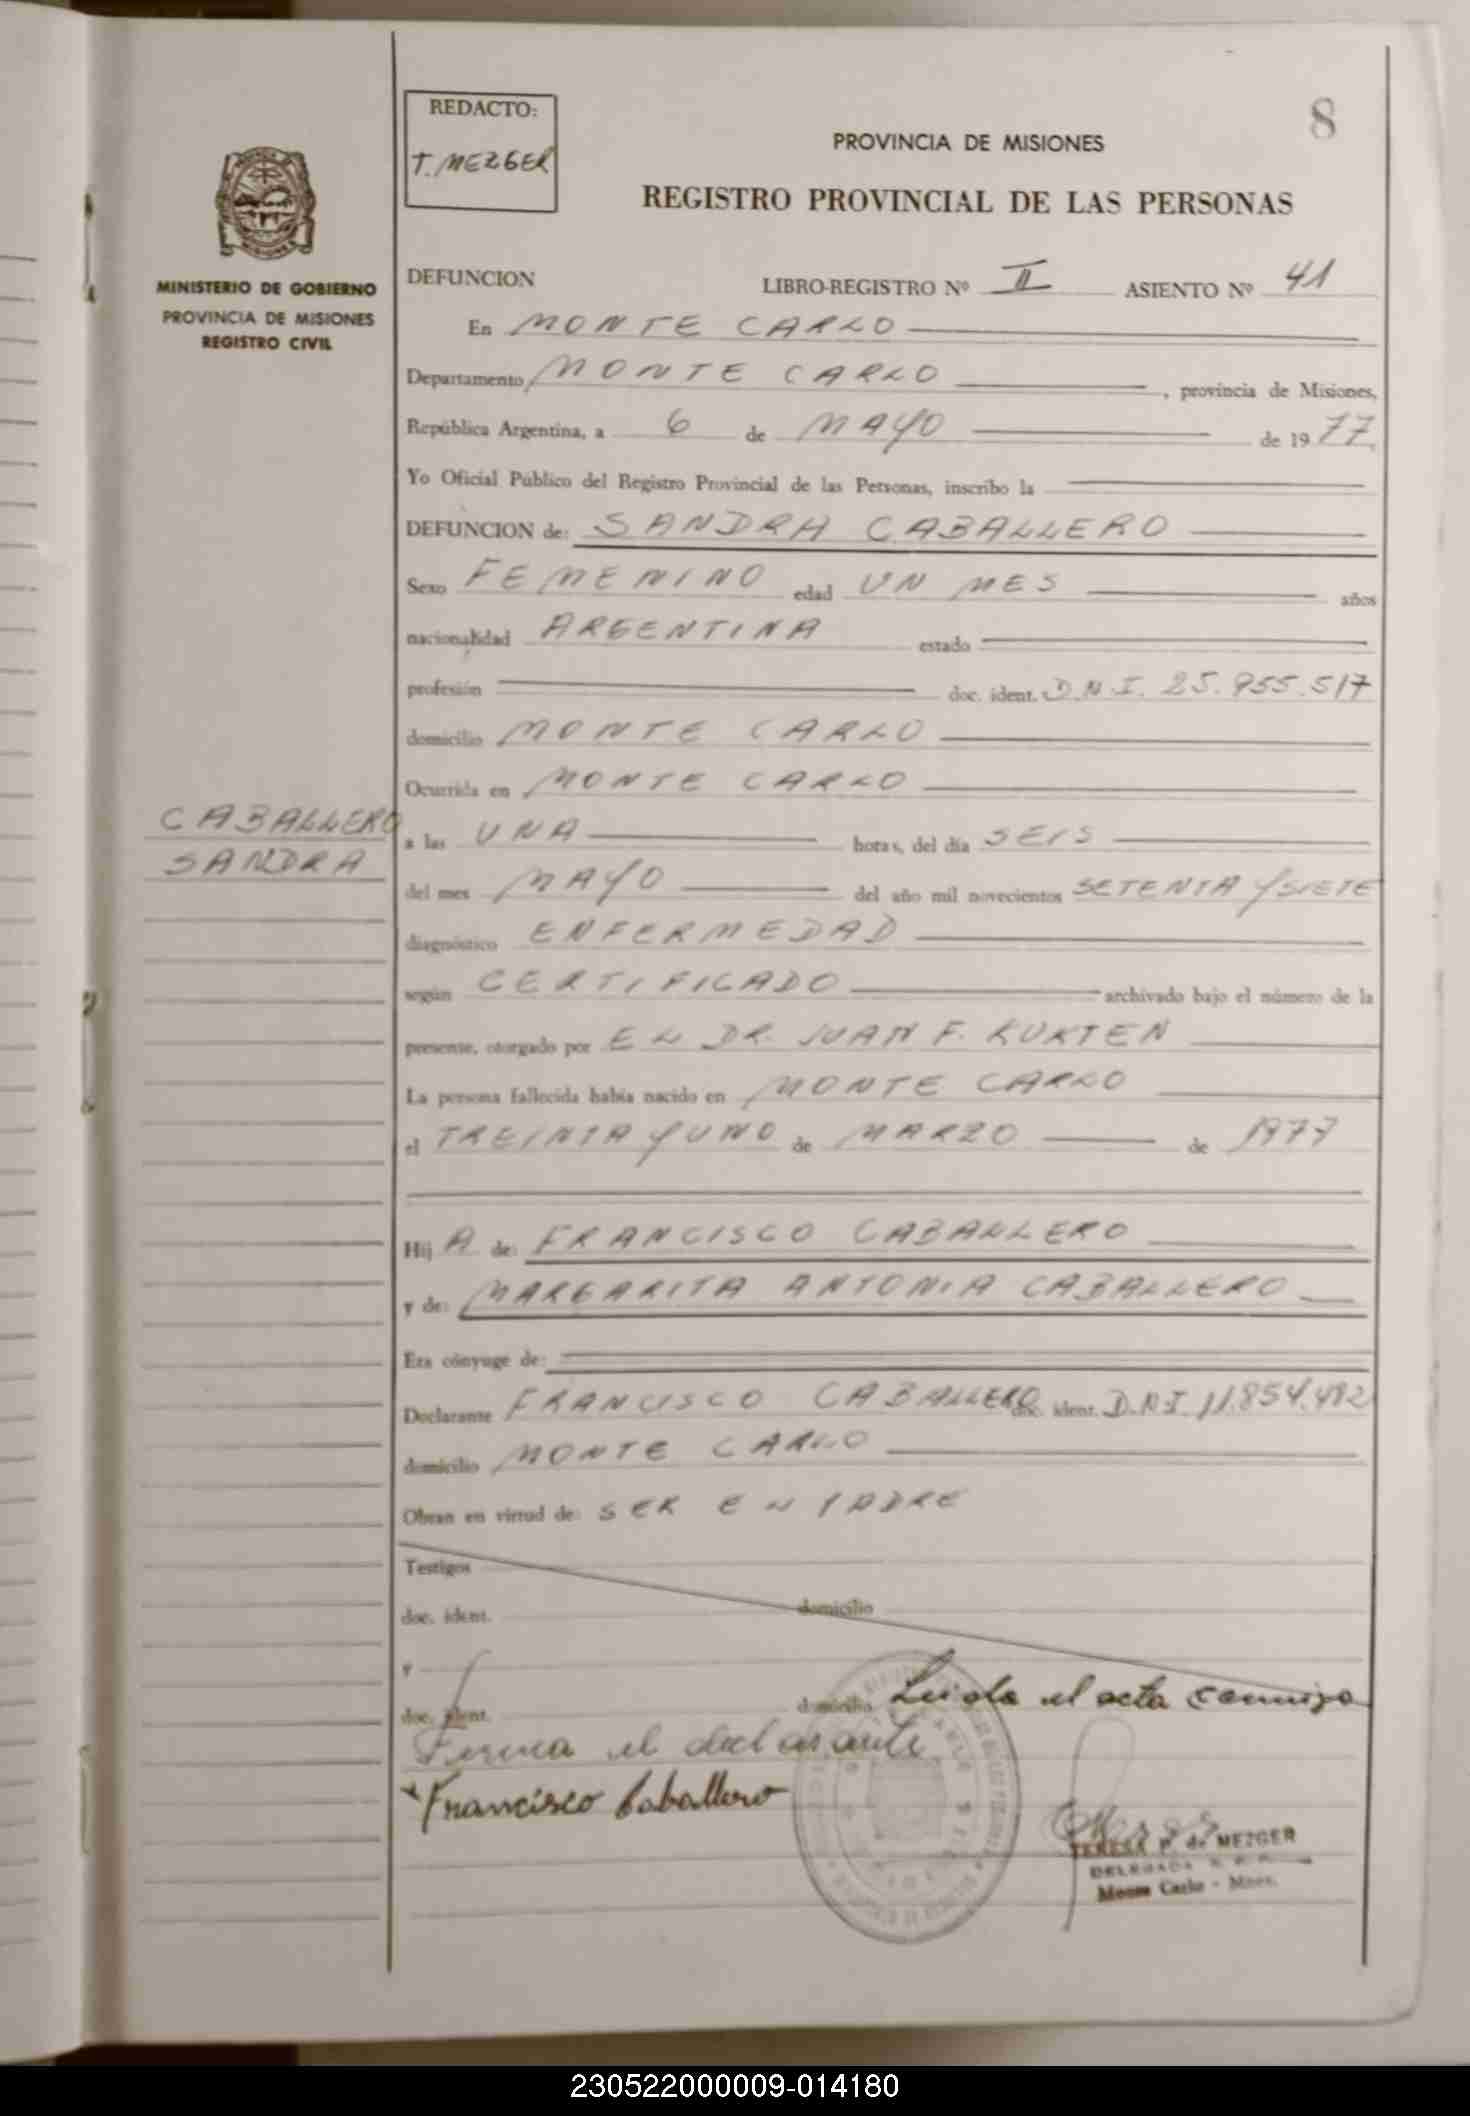 REDACTO:
T. MEZGER
8
PROVINCIA DE MISIONES
REGISTRO PROVINCIAL DE LAS PERSONAS
MINISTERIO DE GOBIERNO
PROVINCIA DE MISIONES
REGISTRO CIVIL
DEFUNCION LIBRO-REGISTRO Nº II ASIENTO Nº 41
En MONTE CARLO
Departamento MONTE CARLO, provincia de Misiones,
República Argentina, a 6 de MAYO de 1977,
Yo Oficial Público del Registro Provincial de las Personas, inscribo la
DEFUNCION de: SANDRA CABALLERO
Sexo FEMENINO edad UN MES años
nacionalidad ARGENTINA estado
profesión doc. ident. D.N.I. 25.955.517
domicilio MONTE CARLO
Ocurrida en MONTE CARLO
CABALLERO
SANDRA
a las UNA horas, del día SEIS
del mes MAYO del año mil novecientos SETENTA Y SIETE
diagnóstico ENFERMEDAD
según CERTIFICADO archivado bajo el número de la
presente, otorgado por EL DR. JUAN F. KUKTEN
La persona fallecida había nacido en MONTE CARLO
el TREINTA Y UNO de MARZO de 1977
Hij A de: FRANCISCO CABALLERO
y de: MARGARITA ANTONIA CABALLERO
Era cónyuge de:
Declarante FRANCISCO CABALLERO doc. ident. D.N.I. 11.854.482
domicilio MONTE CARLO
Obran en virtud de: SER EL PADRE
Testigos
doc. ident. domicilio
y
doc. ident. domicilio Leida el acta conmigo
Firma el declarante
Francisco Caballero
TERESA P. de MEZGER
DELEGADA R. P. P.
Monte Carlo - Mnes.
230522000009-014180